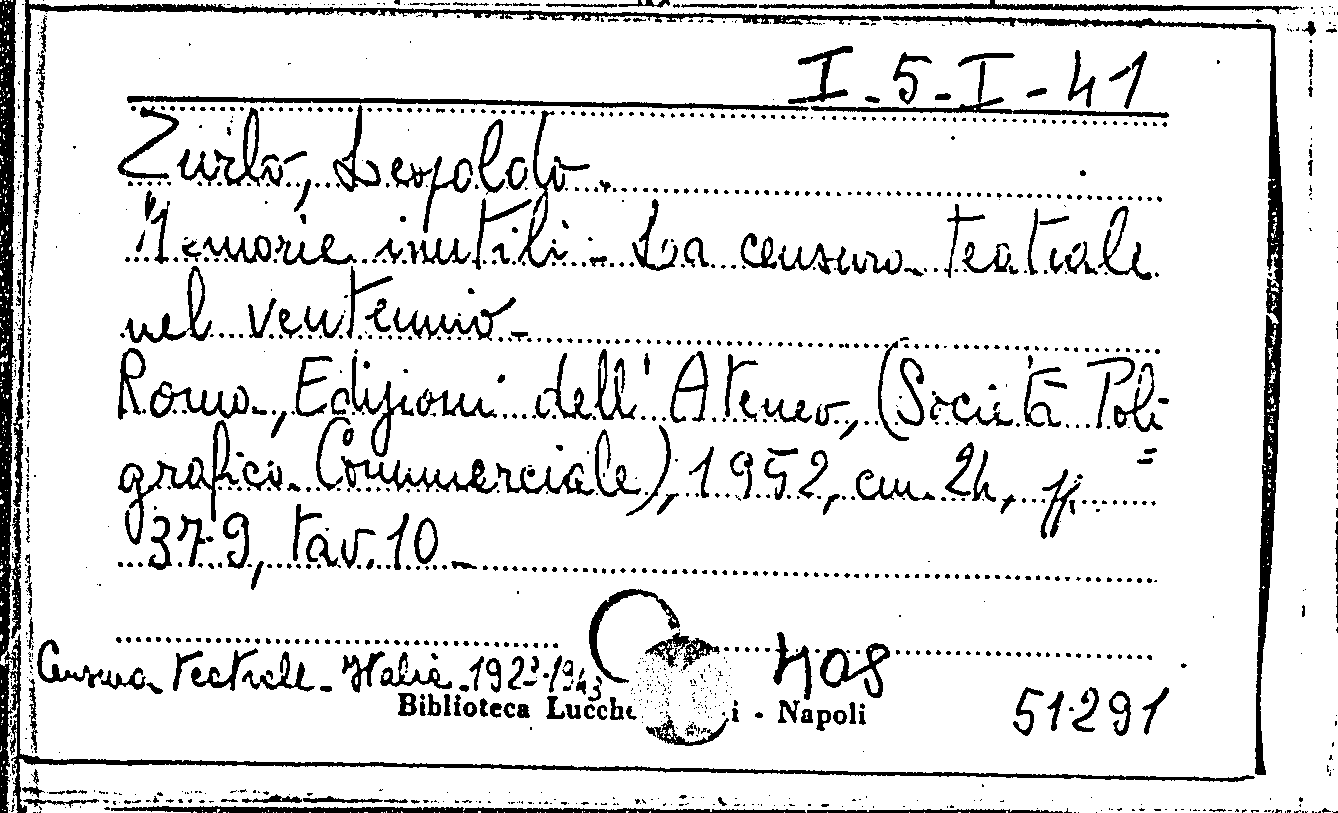 I-5-I-41
Zurlo, Leopoldo.
Memorie inutili - La censura teatrale
nel ventennio-
Roma, Edizioni dell'Ateneo, (Società Poli=
grafica Commerciale), 1952, cm. 24,
379, tav. 10-
408
Censura teatrale - Italia - 1923-1943
Biblioteca Lucche i - Napoli
51291